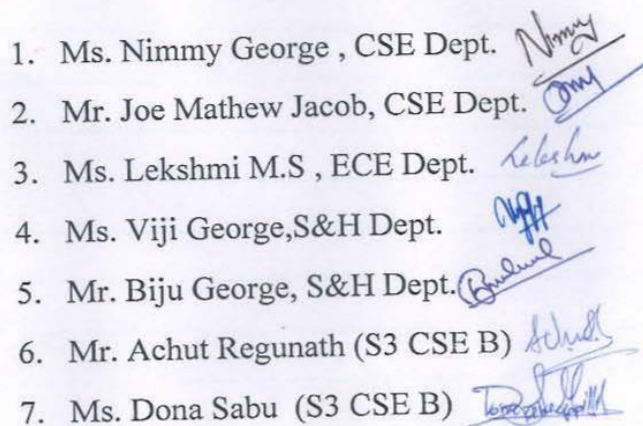 1. Ms. Nimmy George , CSE Dept. Nimmy
2. Mr. Joe Mathew Jacob, CSE Dept.
3. Ms. Lekshmi M.S , ECE Dept. Lekshmi
4. Ms. Viji George,S&H Dept.
5. Mr. Biju George, S&H Dept.
6. Mr. Achut Regunath (S3 CSE B)
7. Ms. Dona Sabu (S3 CSE B)